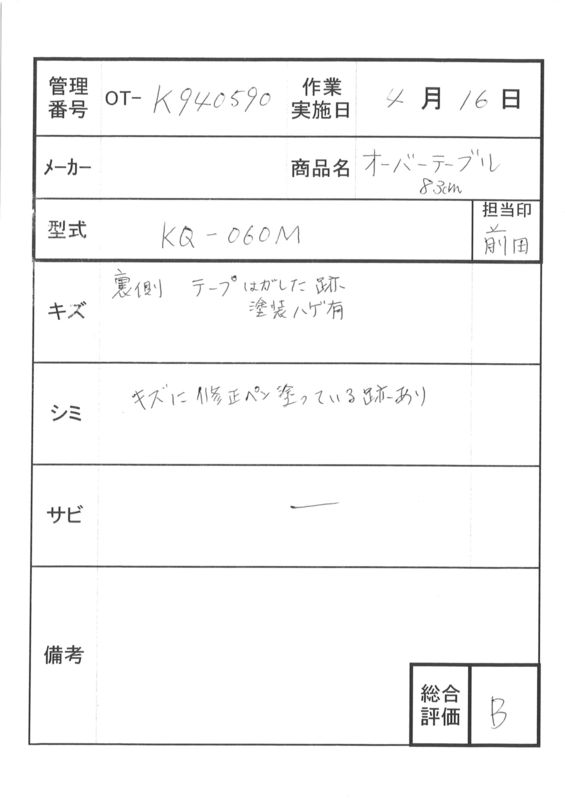 管理番号 OT- K940590 作業実施日 4月16日
メーカー 商品名 オーバーテーブル
83cm
型式 KQ-060M 担当印 前田
キズ 裏側 テープはがした跡
塗装ハゲ有
シミ キズに修正ペン塗っている跡あり
サビ —
備考
総合評価 B